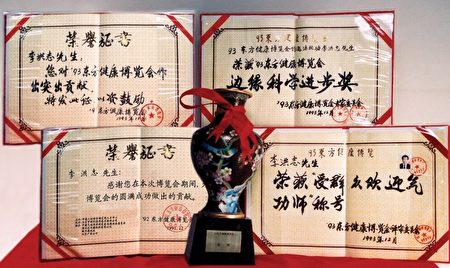 荣誉证书
李洪志先生:
您对'93东方健康博览会作
出突出贡献,
特发此证以资鼓励
'93东方健康博览会
1993年12月
93东方健康博览
李洪志先生:
荣获'93东方健康博览会
边缘科学进步奖
'93东方健康博览会
1993年12月
荣誉证书
李洪志 先生:
感谢您在本次博览会期间,为
博览会的圆满成功做出的贡献。
'92东方健康博览会
93东方健康博览
李洪志先生:
荣获"受群众欢迎气
功师"称号
'93东方健康博览会评审委员会
1993年12月